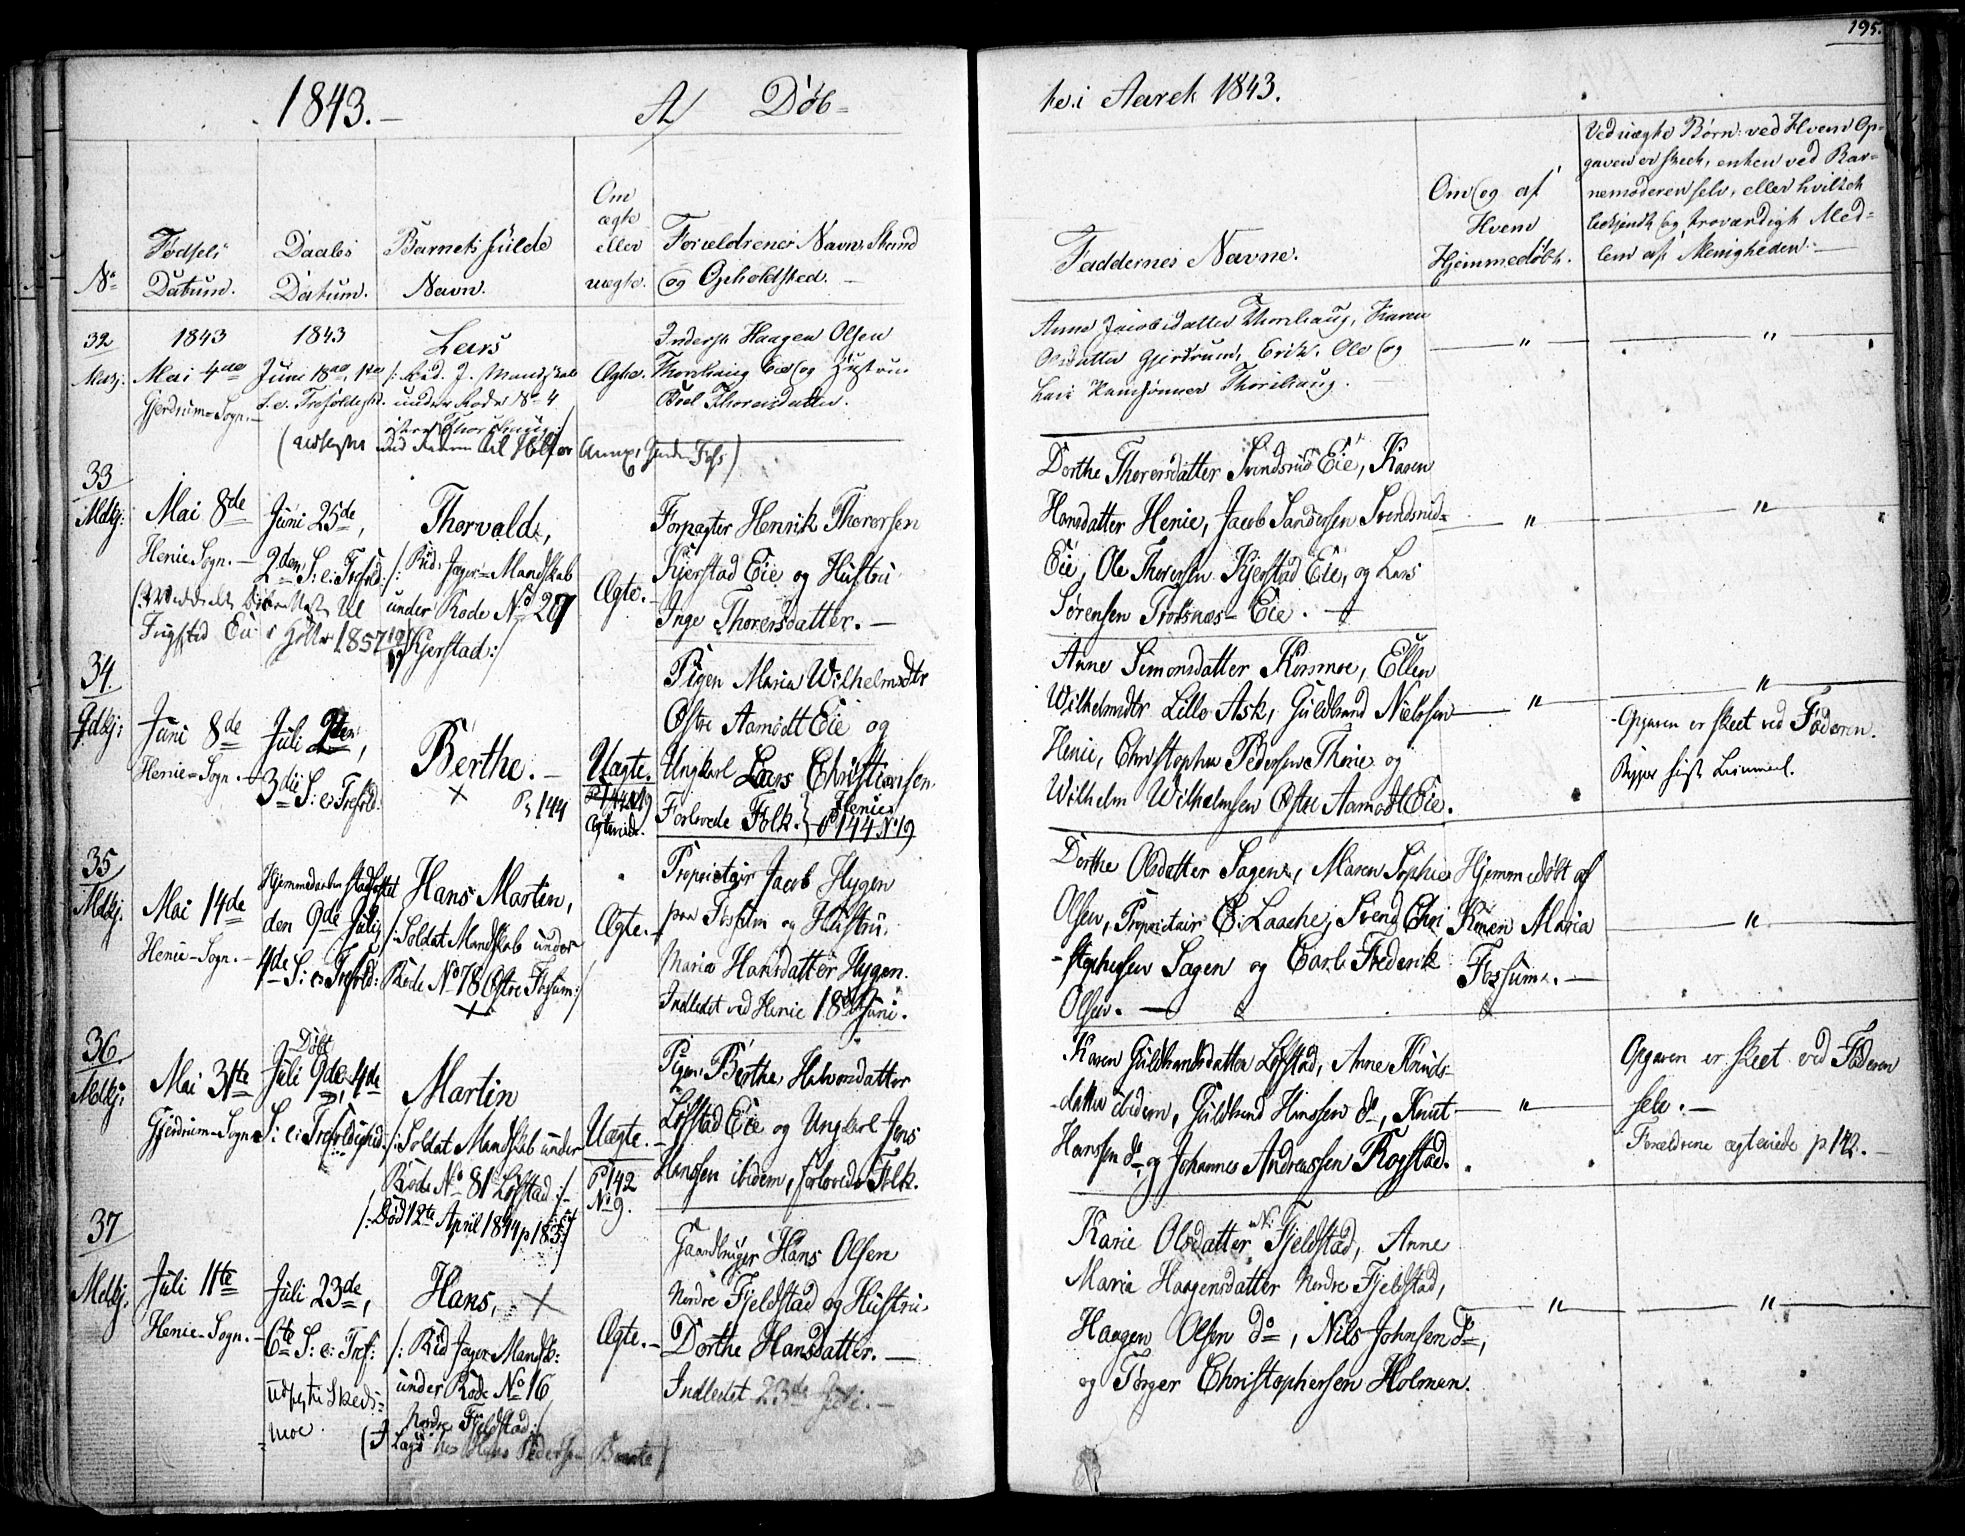 195.
1843.
A/ Døb-
te i Aaret 1843.
No
Fødsels
Datum.
Daabs
Datum.
Barnets fulde
Navn.
Om
ægte
eller
uægte.
Forældrenes Navn, Stand
og Opholdsted.
Faddernes Navne.
Om og af
Hvem
Hjemmedøbt.
Ved uægte Børn: ved Hvem Op-
gaven er skeet, enten ved Bar-
nemoderen selv, eller hvilket
bekjendt og troværdigt Med-
lem af Menigheden.
32
1843
Mai 4de
Gjerdrum Sogn.
1843
Juni 18de, 1ste
S. e. Trefoldighd.
Lars
under Rode No 4
Thorshaug
Ægte.
Inderst Haagen Olsen
Thorshaug Eie og Hustru
Thoresdatter.
Anne Jacobsdatter Thorshaug, Karen
Olsdatter Gjerdrum, Erik, Ole og
Thorshaug.
33
Mdkj:
Mai 8de
Henie Sogn.
Juni 25de,
2den S: e: Trefold:
Thorvald,
/: Rid: Jæger-Mandskab
under Rode No 27
Kjerstad:/
Eie i Høland 1857
Ægte.
Forpagter Henrik Thorersen
Kjerstad Eie og Hustru
Inge Thorersdatter.
Dorthe Thorersdatter Svendsrud Eie, Karen
Hansdatter Henie, Jacob Sandersen Svendsrud-
Eie, Ole Thorersen Kjerstad Eie, og Lars
Sørensen Eie.
34.
Qdkj:
Juni 8de
Henie-Sogn.
Juli 2den,
3die S: e: Trefold:
Berthe.
P, 144
Uægte.
Pigen Maria Wilhelmsdtr
Østre Aamodt Eie og
Ungkarl Lars Christiansen
Henie
Forlovede Folk. P 144 No 19
Anne Simonsdatter Kossmoe, Ellen
Wilhelmsdtr Lille Ask, Guldbrand Nielssen
Henie, Christopher Pedersen Thorie og
Wilhelm Wilhelmsen Østre Aamodt Eie.
-Opgaven er skeet ved Faderen.
35
Mdkj.
Mai 14de
Henie-Sogn.
Hjemmedaaben stadfæstet
den 9de Juli,
4de S: e: Trefold:
Hans Martin,
/: Soldat Mandskab under
Rode No 78 Østre Fossum:/
Ægte.
Proprietair Jacob Hygen
paa Fossum og Hustru
Maria Hansdatter Hygen.
Indledet ved Henie 18de Juni.
Dorthe Olsdatter Sagen, Maren Sophie
Olsen, Proprietair E: Laache, Svend Chri
-stophersen Sagen og Carl Frederik
Olsen.
Hjemmedøbt af
Karen Maria
Fossum.
36.
Mdkj:
Mai 31te
Gjerdrum-Sogn
Døbt
Juli 9de, 4de
S: e: Trefoldighed.
Martin
/: Soldat Mandskab under
Rode No 81 Løfstad:/
/: Død 12te April 1844 p 185:/
Uægte.
P 142
No 9.
Pigen Berthe Halvorsdatter
Løfstad Eie og Ungkarl Jens
Hanssen ibidem, forlovede Folk.
Karen Guldbrandsdatter Løfstad, Anne Knuds-
-datter ibidem, Guldbrand Hanssen do, Knut
Hanssen do, og Johannes Andreassen Rogstad.
Opgaven er skeet ved Faderen
selv.
Forældrene ægteviede p 142.
37
Mdkj:
Juli 11te
Henie-Sogn.
Juli 23de,
6te S: e: Tref:
Skeds-
moe.
Hans,
/: Rid Jæger Mandsk:
under Rode No 16
Nordre Fjeldstad:/
Hans Pedersen
Ægte.
Gaardbruger Hans Olsen
Nordre Fjeldstad og Hustru
Dorthe Hansdatter.
Indledet 23de Juli.
Karie Olsdatter N: Fjeldstad, Anne
Marie Haagensdatter Nordre Fjeldstad,
Haagen Olsen do, Nils Johnsen do,
og Torger Christophersen Holmen.